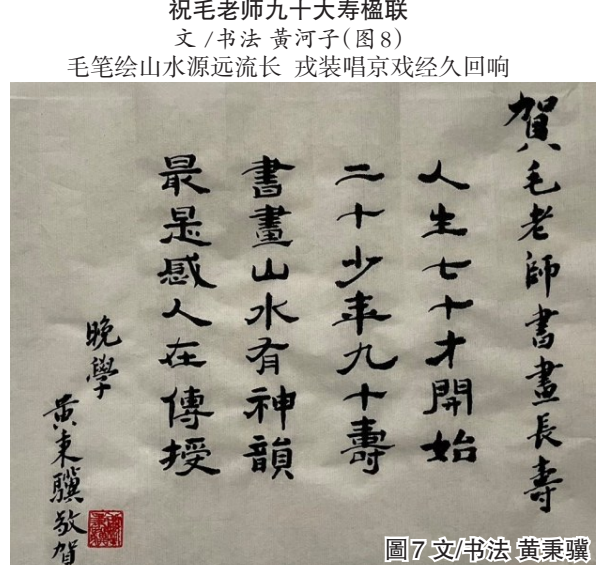 祝毛老师九十大寿楹联
文 /书法 黄河子(图8)
毛笔绘山水源远流长 戎装唱京戏经久回响
賀毛老師書畫長壽
人生七十才開始
二十少年九十壽
書畫山水有神韻
最是感人在傳授
晚學
黄秉驥敬賀
圖7 文/书法 黄秉骥